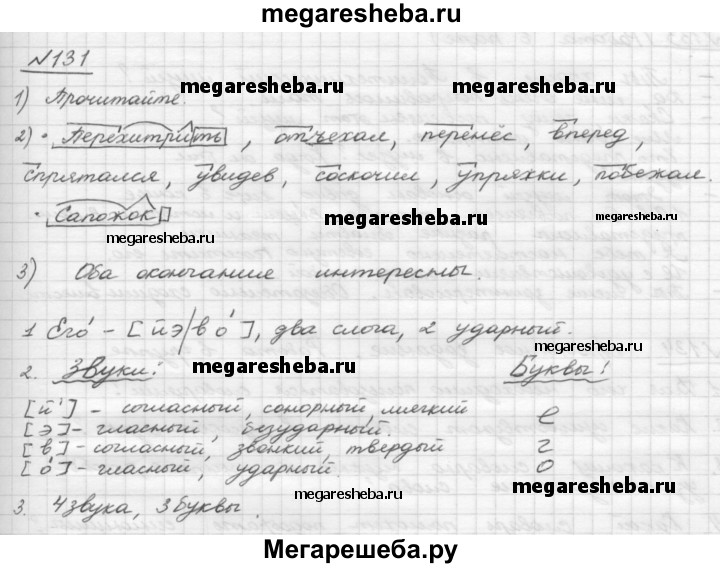 megaresheba.ru
№131
1) Прочитайте. megaresheba.ru megaresheba.ru
2) • Перехитрить, отъехал, перенёс, вперед,
спрятался, увидев, соскочил, упряжки, побежал.
• Сапожок megaresheba.ru megaresheba.ru
megaresheba.ru
3) Оба окончание интересны.
1 Его́ – [йэ/во́], два слога, 2 ударный.
megaresheba.ru
2. Звуки: megaresheba.ru Буквы!
[й'] – согласный, сонорный, мягкий е
[э] – гласный, безударный.
[в] – согласный, звонкий, твёрдый г
[о́] – гласный, ударный. о
megaresheba.ru
megaresheba.ru
3. 4 звука, 3 буквы.
Мегарешеба.ру